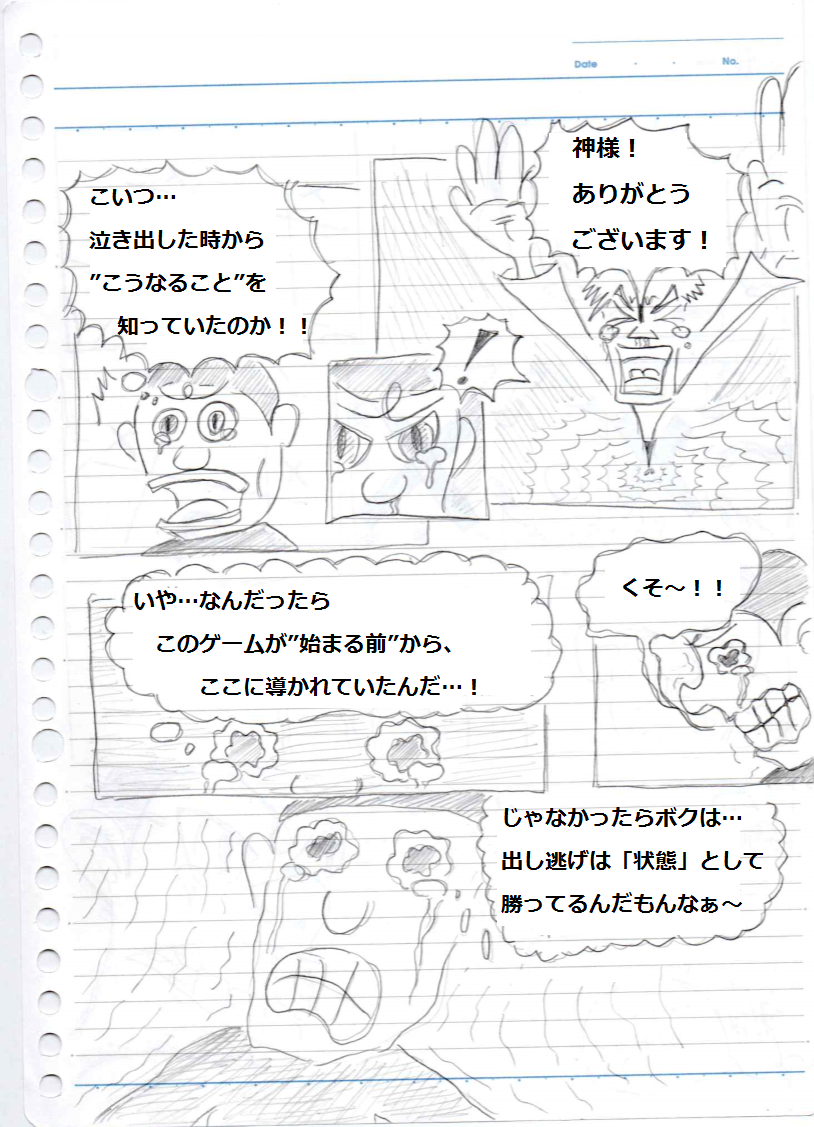 Date
No.
神様！
ありがとう
ございます！
こいつ…
泣き出した時から
”こうなること”を
知っていたのか！！
！
いや…なんだったら
このゲームが”始まる前”から、
ここに導かれていたんだ…！
くそ～！！
じゃなかったらボクは…
出し逃げは「状態」として
勝ってるんだもんなぁ～